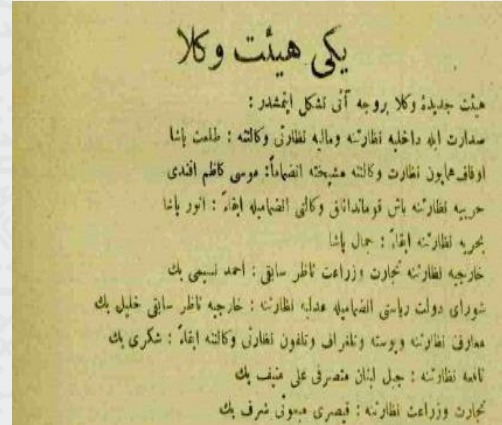 یكی هیئت وكلا
هیئت جدیدهٔ وكلا بروجه آتی تشكل ایتمشدر :
صدارت ایله داخلیه نظارتنه ومالیه نظارتی وكالتنه : طلعت پاشا
اوقاف همایون نظارت وكالتنه مشیخته انضماماً : موسی كاظم افندی
حربیه نظارتنه باش قوماندانلق وكالتی انضمامیله ابقاءً : انور پاشا
بحریه نظارتنه ابقاءً : جمال پاشا
خارجیه نظارتنه تجارت وزراعت ناظر سابقی : احمد نسیمی بك
شورای دولت ریاستی انضمامیله عدلیه نظارتنه : خارجیه ناظر سابقی خلیل بك
معارف نظارتنه وپوسته وتلغراف وتلفون نظارتی وكالتنه ابقاءً : شكری بك
نافعه نظارتنه : جبل لبنان متصرفی علی منیف بك
تجارت وزراعت نظارتنه : قیصری مبعوثی شرف بك